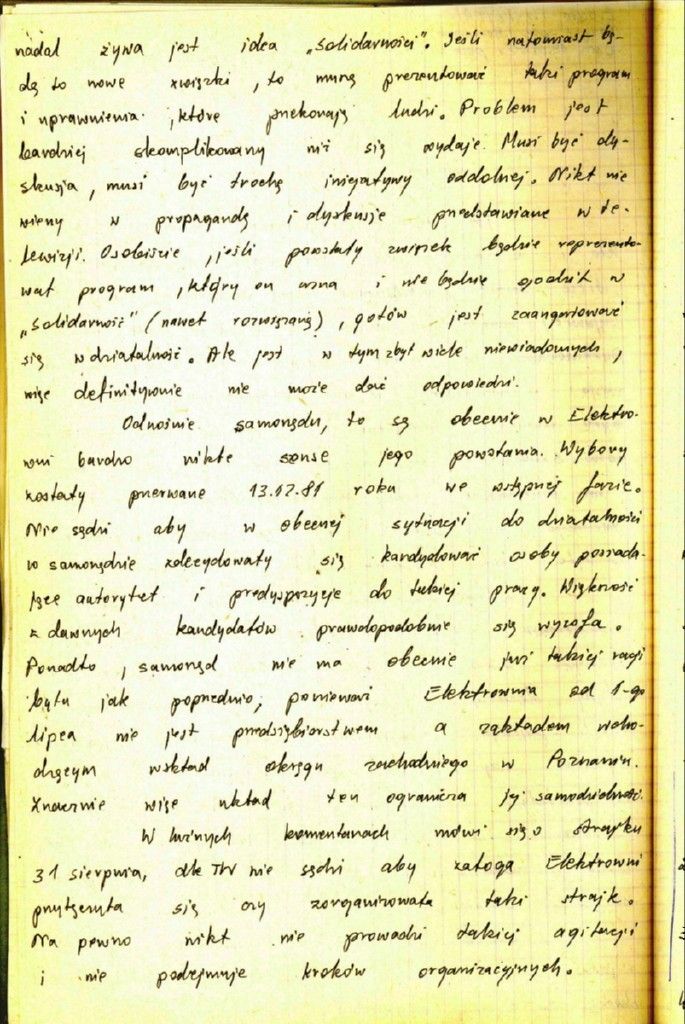 nadal żywa jest idea „Solidarności". Jeśli natomiast bę-
dą to nowe związki, to muszą prezentować taki program
i uprawnienia, które przekonają ludzi. Problem jest
bardziej skomplikowany niż się wydaje. Musi być dy-
skusja, musi być trochę inicjatywy oddolnej. Nikt nie
wierzy w propagandę i dyskusje przedstawiane w te-
lewizji. Osobiście, jeśli powstały związek będzie reprezento-
wał program, który on uzna i nie będzie godził w
„Solidarność" (nawet rozwiązaną), gotów jest zaangażować
się w działalność. Ale jest w tym zbyt wiele niewiadomych,
więc definitywnie nie może dać odpowiedzi.
Odnośnie samorządu, to są obecnie w Elektro-
wni bardzo nikłe szanse jego powstania. Wybory
zostały przerwane 13.12.81 roku we wstępnej fazie.
Nie sądzi aby w obecnej sytuacji do działalności
w samorządzie zdecydowały się kandydować osoby posiada-
jące autorytet i predyspozycje do takiej pracy. Większość
z dawnych kandydatów prawdopodobnie się wycofa.
Ponadto, samorząd nie ma obecnie już takiej racji
bytu jak poprzednio, ponieważ Elektrownia od 1-go
lipca nie jest przedsiębiorstwem a zakładem wcho-
dzącym w skład okręgu zachodniego w Poznaniu.
Znacznie więc układ ten ogranicza jej samodzielność.
W luźnych komentarzach mówi się o strajku
31 sierpnia, ale TW nie sądzi aby załoga Elektrowni
przyłączyła się czy zorganizowała taki strajk.
Na pewno nikt nie prowadzi takiej agitacji
i nie podejmuje kroków organizacyjnych.